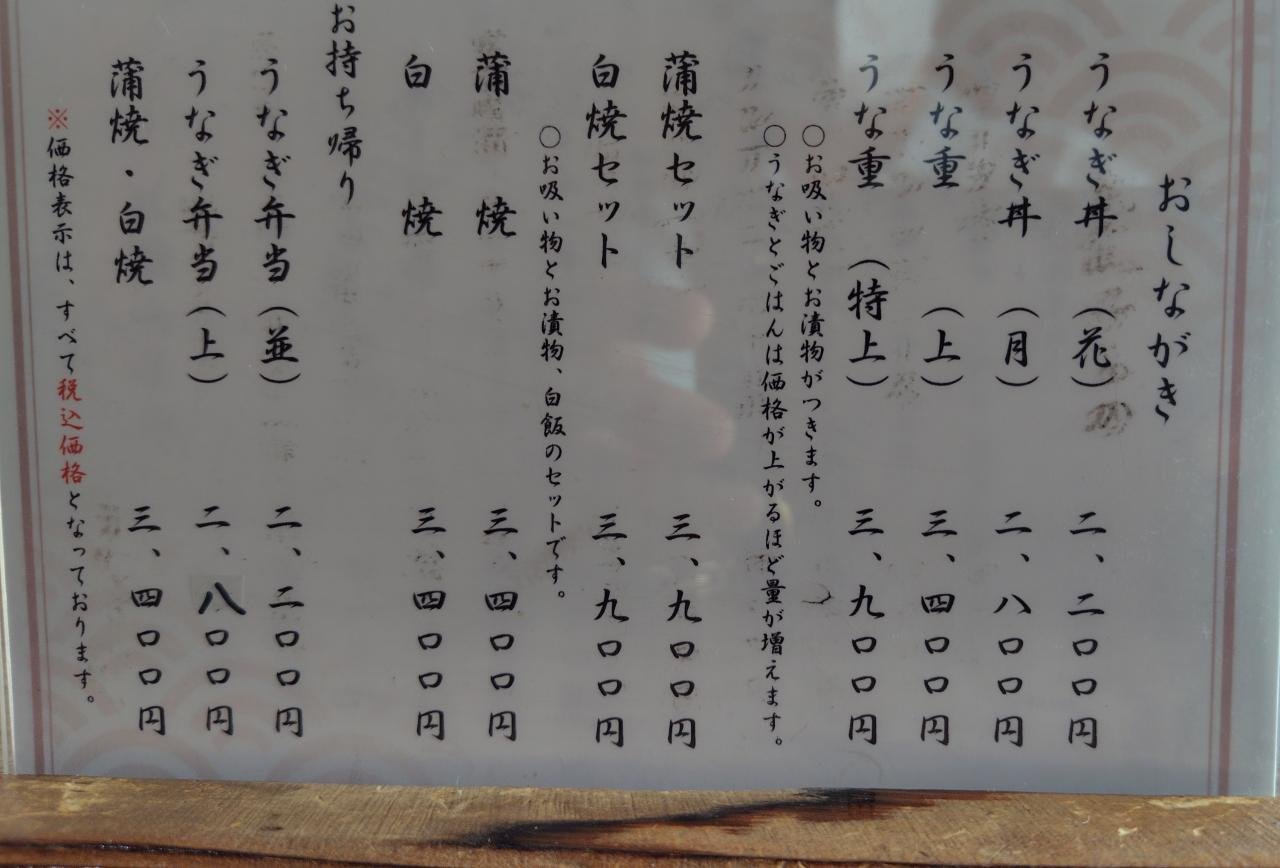 おしながき
うなぎ丼（花） 二、二〇〇円
うなぎ丼（月） 二、八〇〇円
うな重（上） 三、四〇〇円
うな重（特上） 三、九〇〇円
〇お吸い物とお漬物がつきます。
〇うなぎとごはんは価格が上がるほど量が増えます。
蒲焼セット 三、九〇〇円
白焼セット 三、九〇〇円
〇お吸い物とお漬物、白飯のセットです。
蒲焼 三、四〇〇円
白焼 三、四〇〇円
お持ち帰り
うなぎ弁当（並） 二、二〇〇円
うなぎ弁当（上） 二、八〇〇円
蒲焼・白焼 三、四〇〇円
※価格表示は、すべて税込価格となっております。